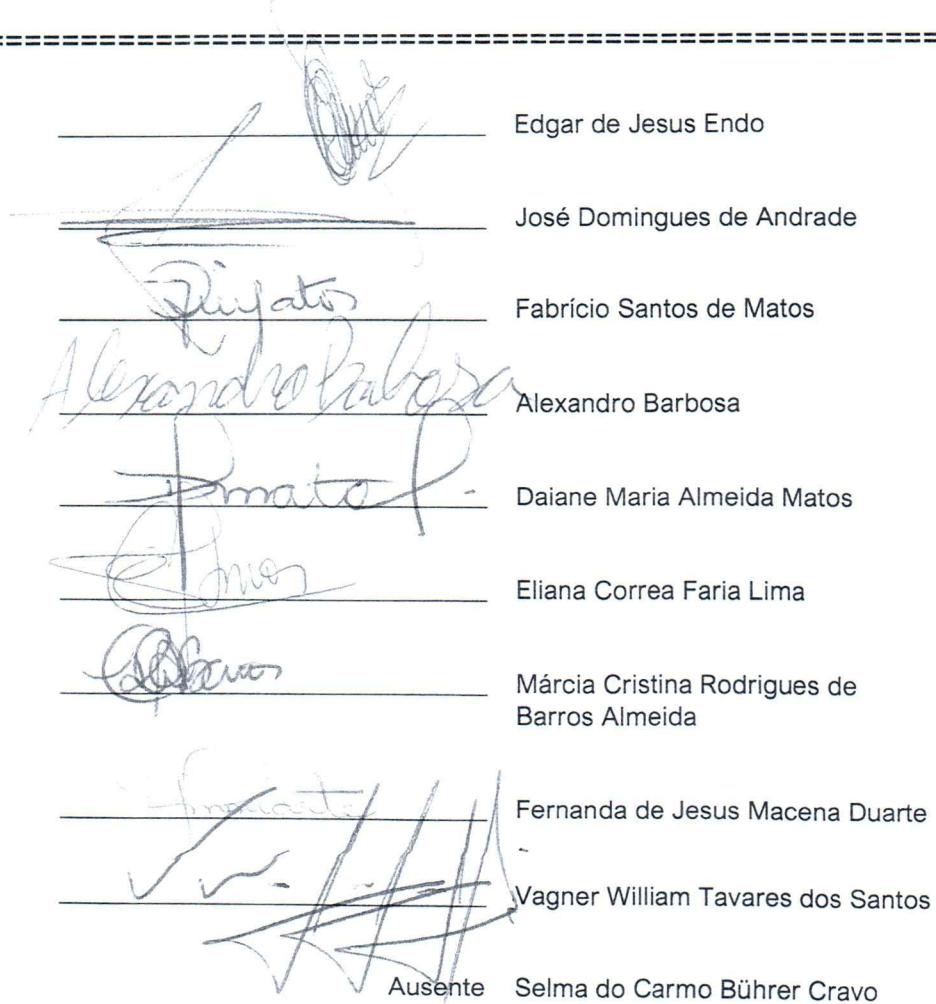 ==================================================
Edgar de Jesus Endo
José Domingues de Andrade
Fabrício Santos de Matos
Alexandro Barbosa
Alexandro Barbosa
Daiane Maria Almeida Matos
Eliana Correa Faria Lima
Márcia Cristina Rodrigues de
Barros Almeida
Fernanda de Jesus Macena Duarte
Vagner William Tavares dos Santos
Ausente Selma do Carmo Bührer Cravo